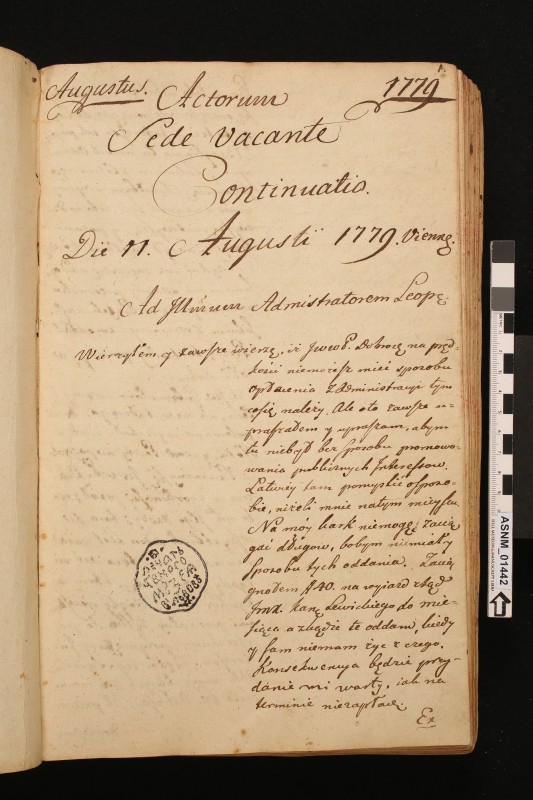 Augustus. Actorum 1779
Sede vacante
Continuatio.
Die 11. Augusti 1779. Viennę.
Ad Illmum Admistratorem Leopę.
Wierzyłem, y zawsze wierzę, iż JWWP. Dobrocę na pręd-
kości niemożesz mieć sposobu
opłacenia z Administracyi tym
co się należy. Ale oto zawsze u-
praszałem y upraszam, abym
tu niebył bez sposobu promowo-
wania publicznych Interessow.
Łatwiey tam pomyślić o sposo-
bie, niżeli mnie na tym mieyscu.
Na moy kark niemogę zacią-
gać długow, bobym niemiał y
sposobu tych oddania. Zacią-
gnołem # 40. na wyiazd ztąd
Jmx. Kanę Lewickiego do mie-
siąca a zkądże te oddam, kiedy
y sam niemam żyć z czego.
Konsekwencya będzie przy-
danie mi warty, iak na
terminie niezapłacę.
Ex
ASNM_01442